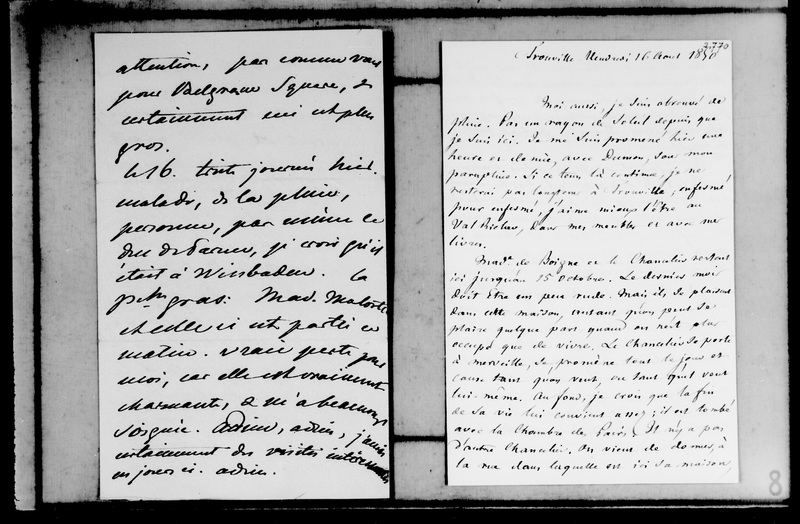 attention, pas comme vous
pour Belgrave Square, &
certainement ceci est plus
gros.
le 16. triste journée hier.
malade, de la pluie,
personne, pas même le
duc de Parme, je crois qu'il
était à Wiesbaden. la
gras. Mad.
est partie ce
matin. vraie perte pour
moi, car elle est vraiment
charmante, & m'a beaucoup
soignée. adieu, adieu, j'aurai
certainement des visites
ces jours ci. adieu.
2770
Trouville Vendredi 16 Aout 1850
Moi aussi, je suis abreuvé de
pluie. Pas un rayon de Soleil depuis que
je suis ici. Je me suis promené hier une
heure et demie, avec Dumon, sous mon
parapluie. Si ce tems là continue, je ne
resterai pas longtems à Trouville; enfermé
pour enfermé, j'aime mieux l'être au
Val Richer, dans mes meubles et avec mes
livres.
Made de Boigne et le Chancelier restent
ici jusqu'au 15 octobre. Le dernier mois
doit être un peu rude. Mais ils se plaisent
dans cette maison, autant qu'on peut se
plaire quelque part quand on n'est plus
occupé que de vivre. Le Chancelier se porte
à merveille, se promène tout le jour et
cause tant qu'on veut, ou tant qu'il veut
lui-même. Au fond, je crois que la fin
de sa vie lui convient assez; il est tombé
avec la Chambre des Pairs. Il n'y a pas
d'autre Chancelier. On vient de donner, à
la rue dans laquelle est ici sa maison,
8